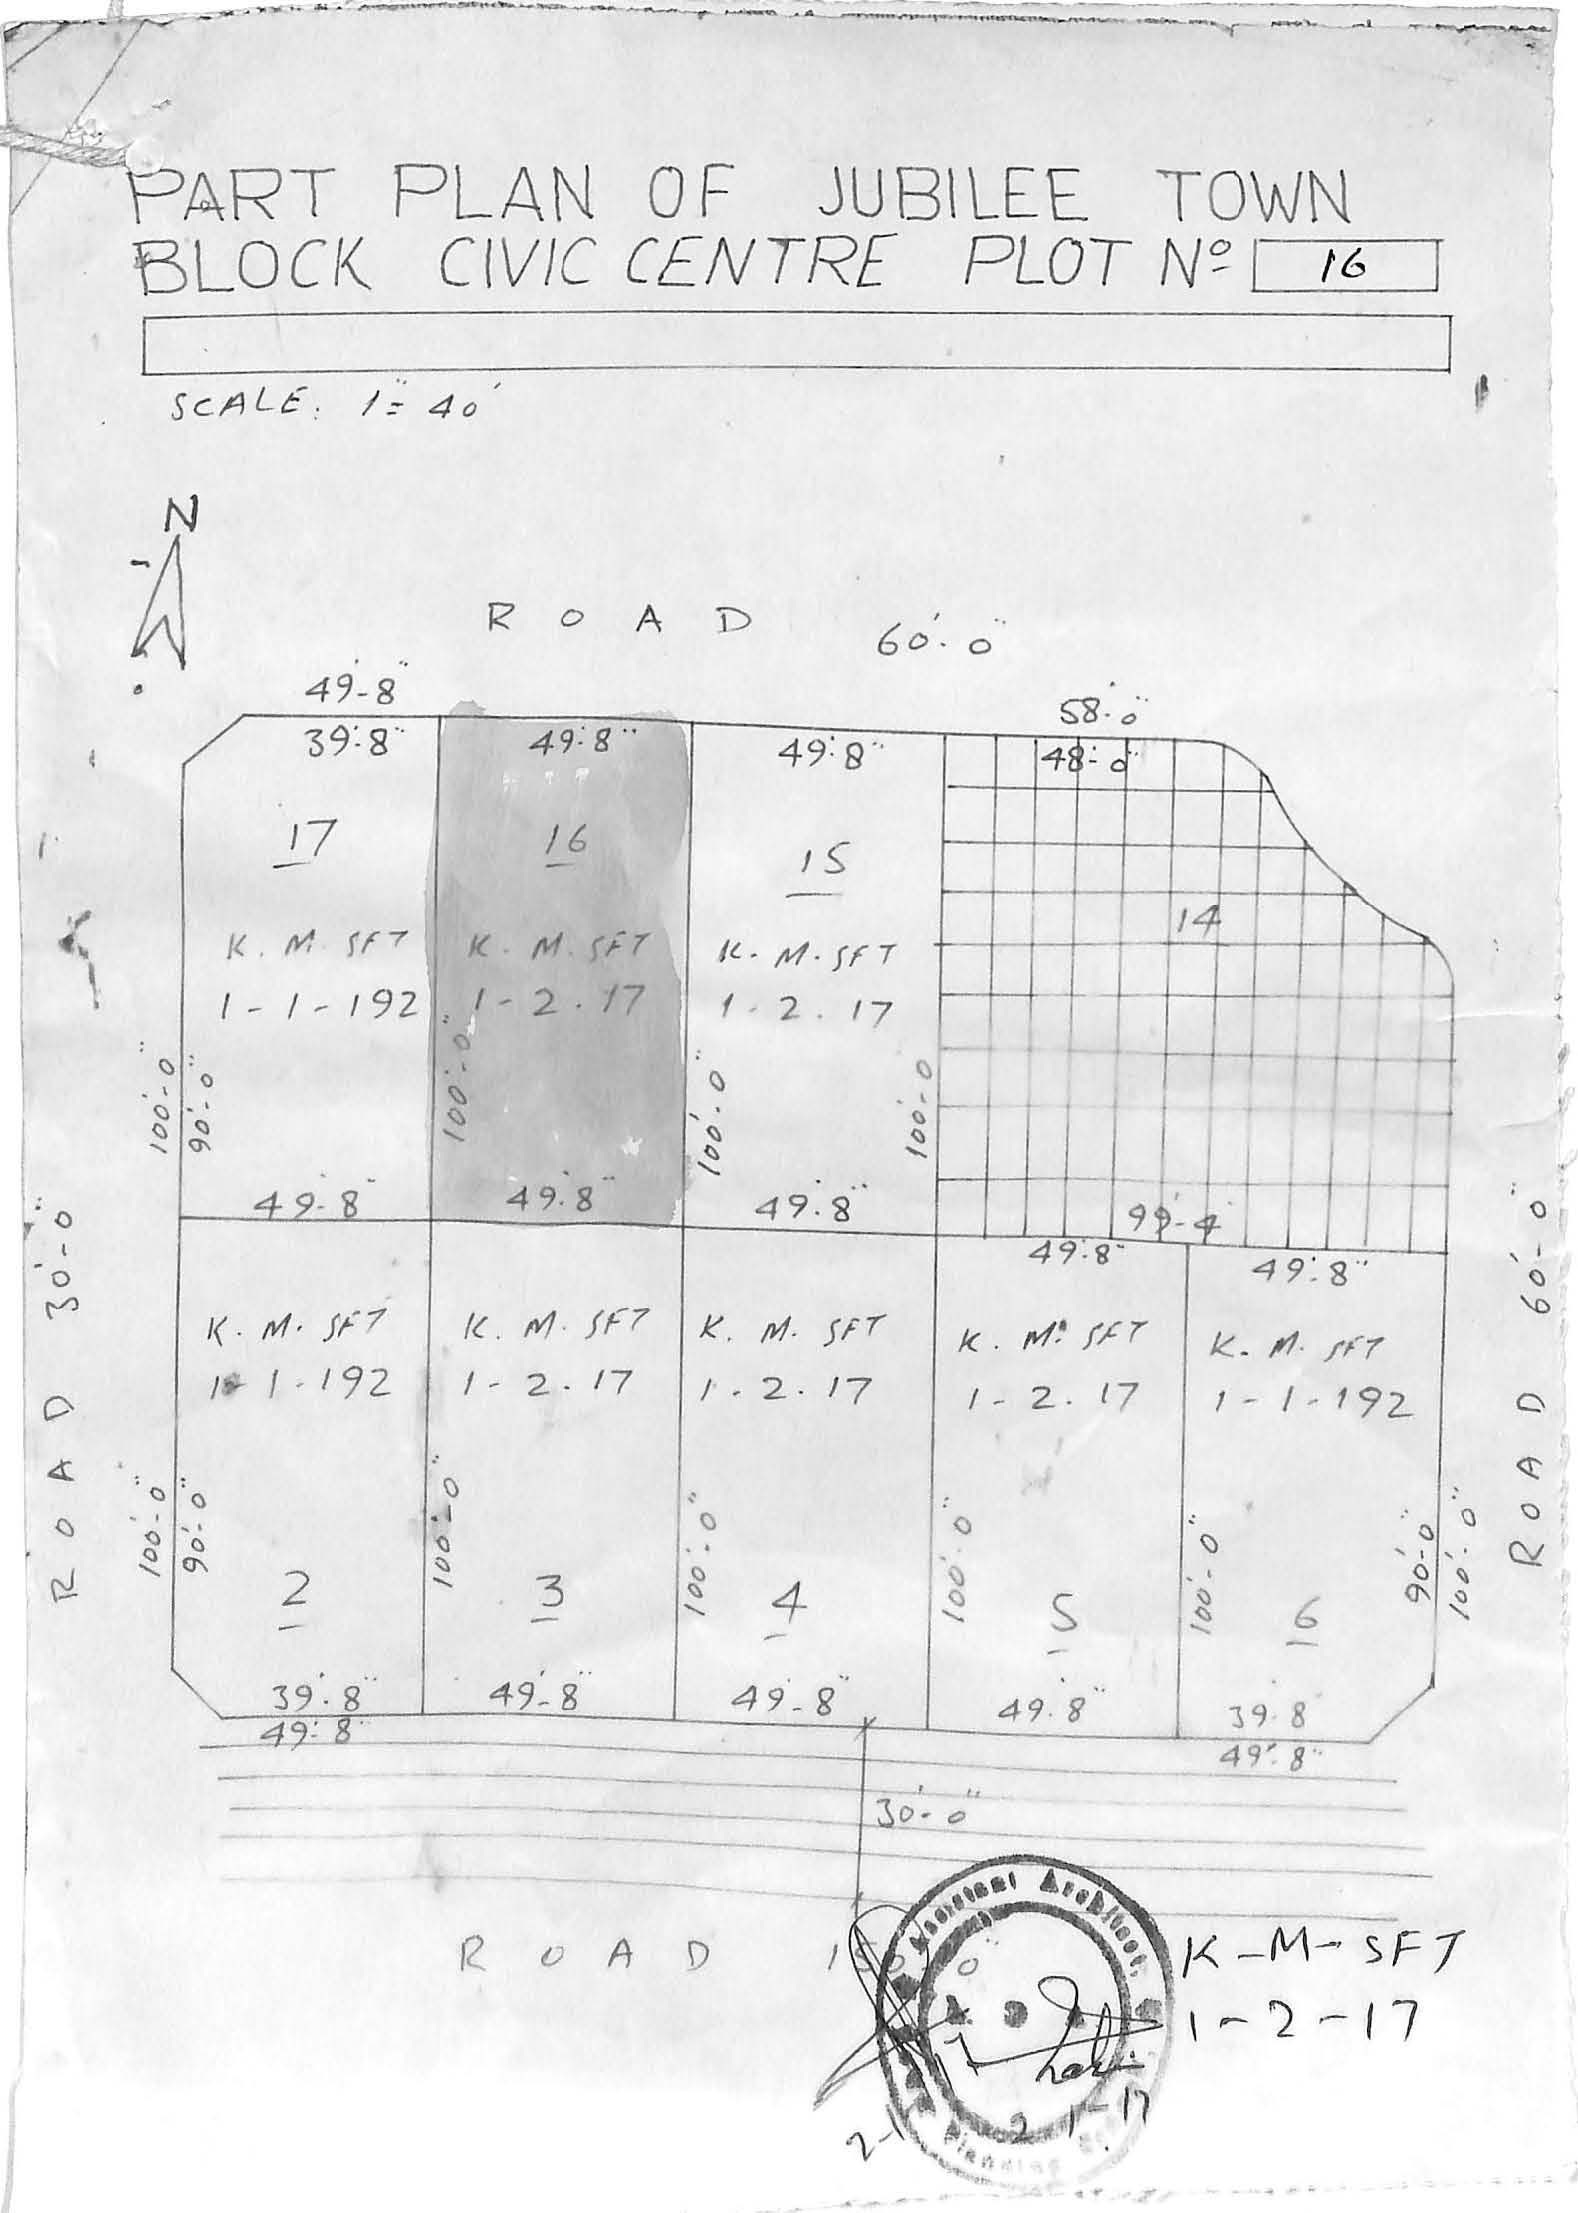 PART PLAN OF JUBILEE TOWN
BLOCK CIVIC CENTRE PLOT Nº 16
SCALE: 1"= 40'
N
ROAD 60'-0"
49'-8"
58'-0"
39'-8"
49'-8"
49'-8"
48'-0"
17
16
15
14
K. M. SFT
K. M. SFT
K. M. SFT
1-1-192
1-2.17
1-2.17
100'-0"
90'-0"
100'-0"
100'-0"
100'-0
49'-8"
49'-8"
49'-8"
99'-4"
49'-8"
49'-8"
ROAD 30'-0"
ROAD 60'-0"
K. M. SFT
K. M. SFT
K. M. SFT
K. M. SFT
K. M. SFT
1-1-192
1-2.17
1-2.17
1-2.17
1-1-192
100'-0"
90'-0"
100'-0"
100'-0"
100'-0"
100'-0"
90'-0"
100'-0"
2
3
4
5
6
39'-8"
49'-8"
49'-8"
49'-8"
39'-8
49'-8"
49'-8"
30'-0"
ROAD
Assistant Architect
Planning
K-M-SFT
1-2-17
2-1-17